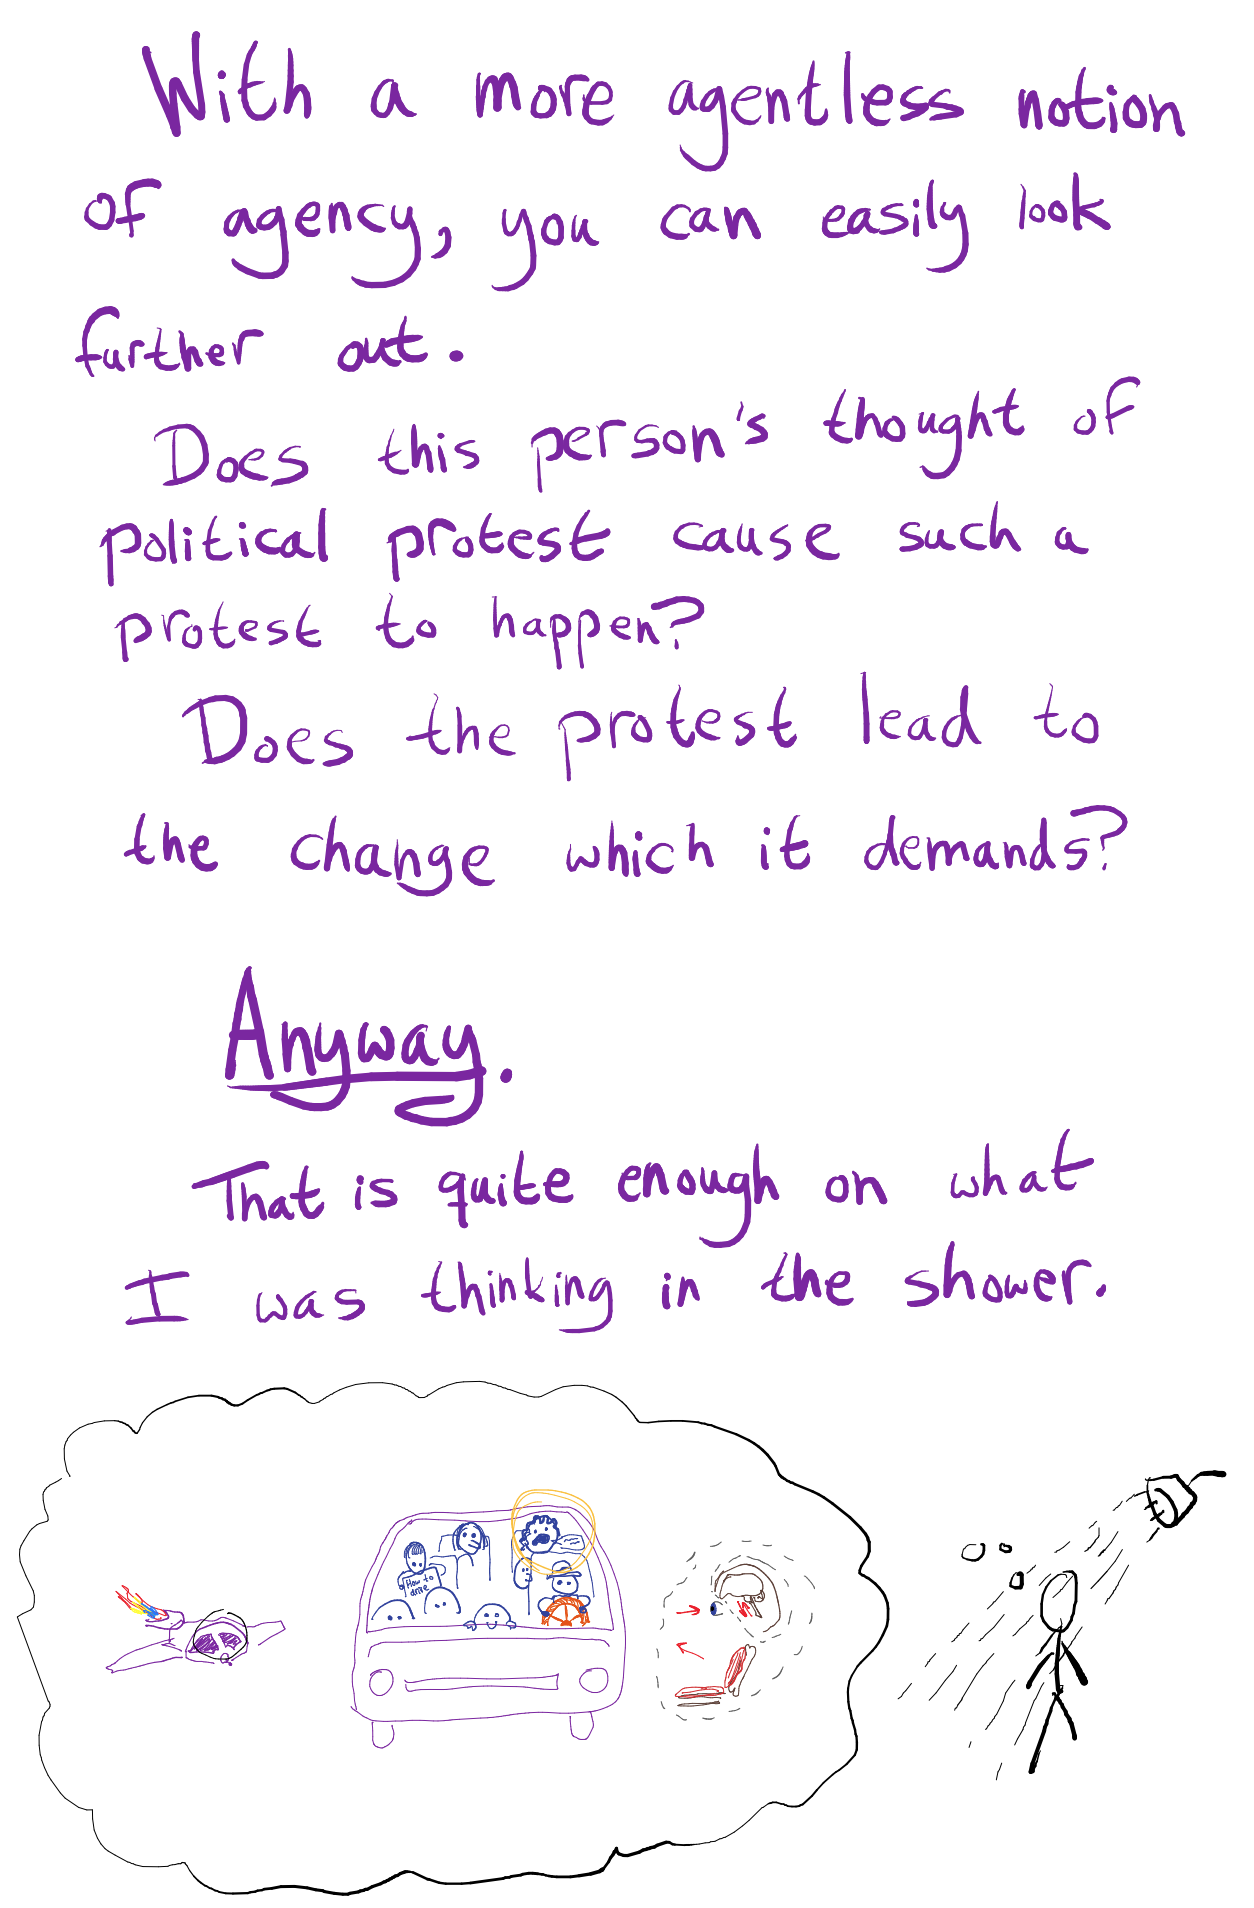 With a more agentless notion
of agency, you can easily look
further out.
Does this person's thought of
political protest cause such a
protest to happen?
Does the protest lead to
the change which it demands?
Anyway.
That is quite enough on what
I was thinking in the shower.
How to
drive